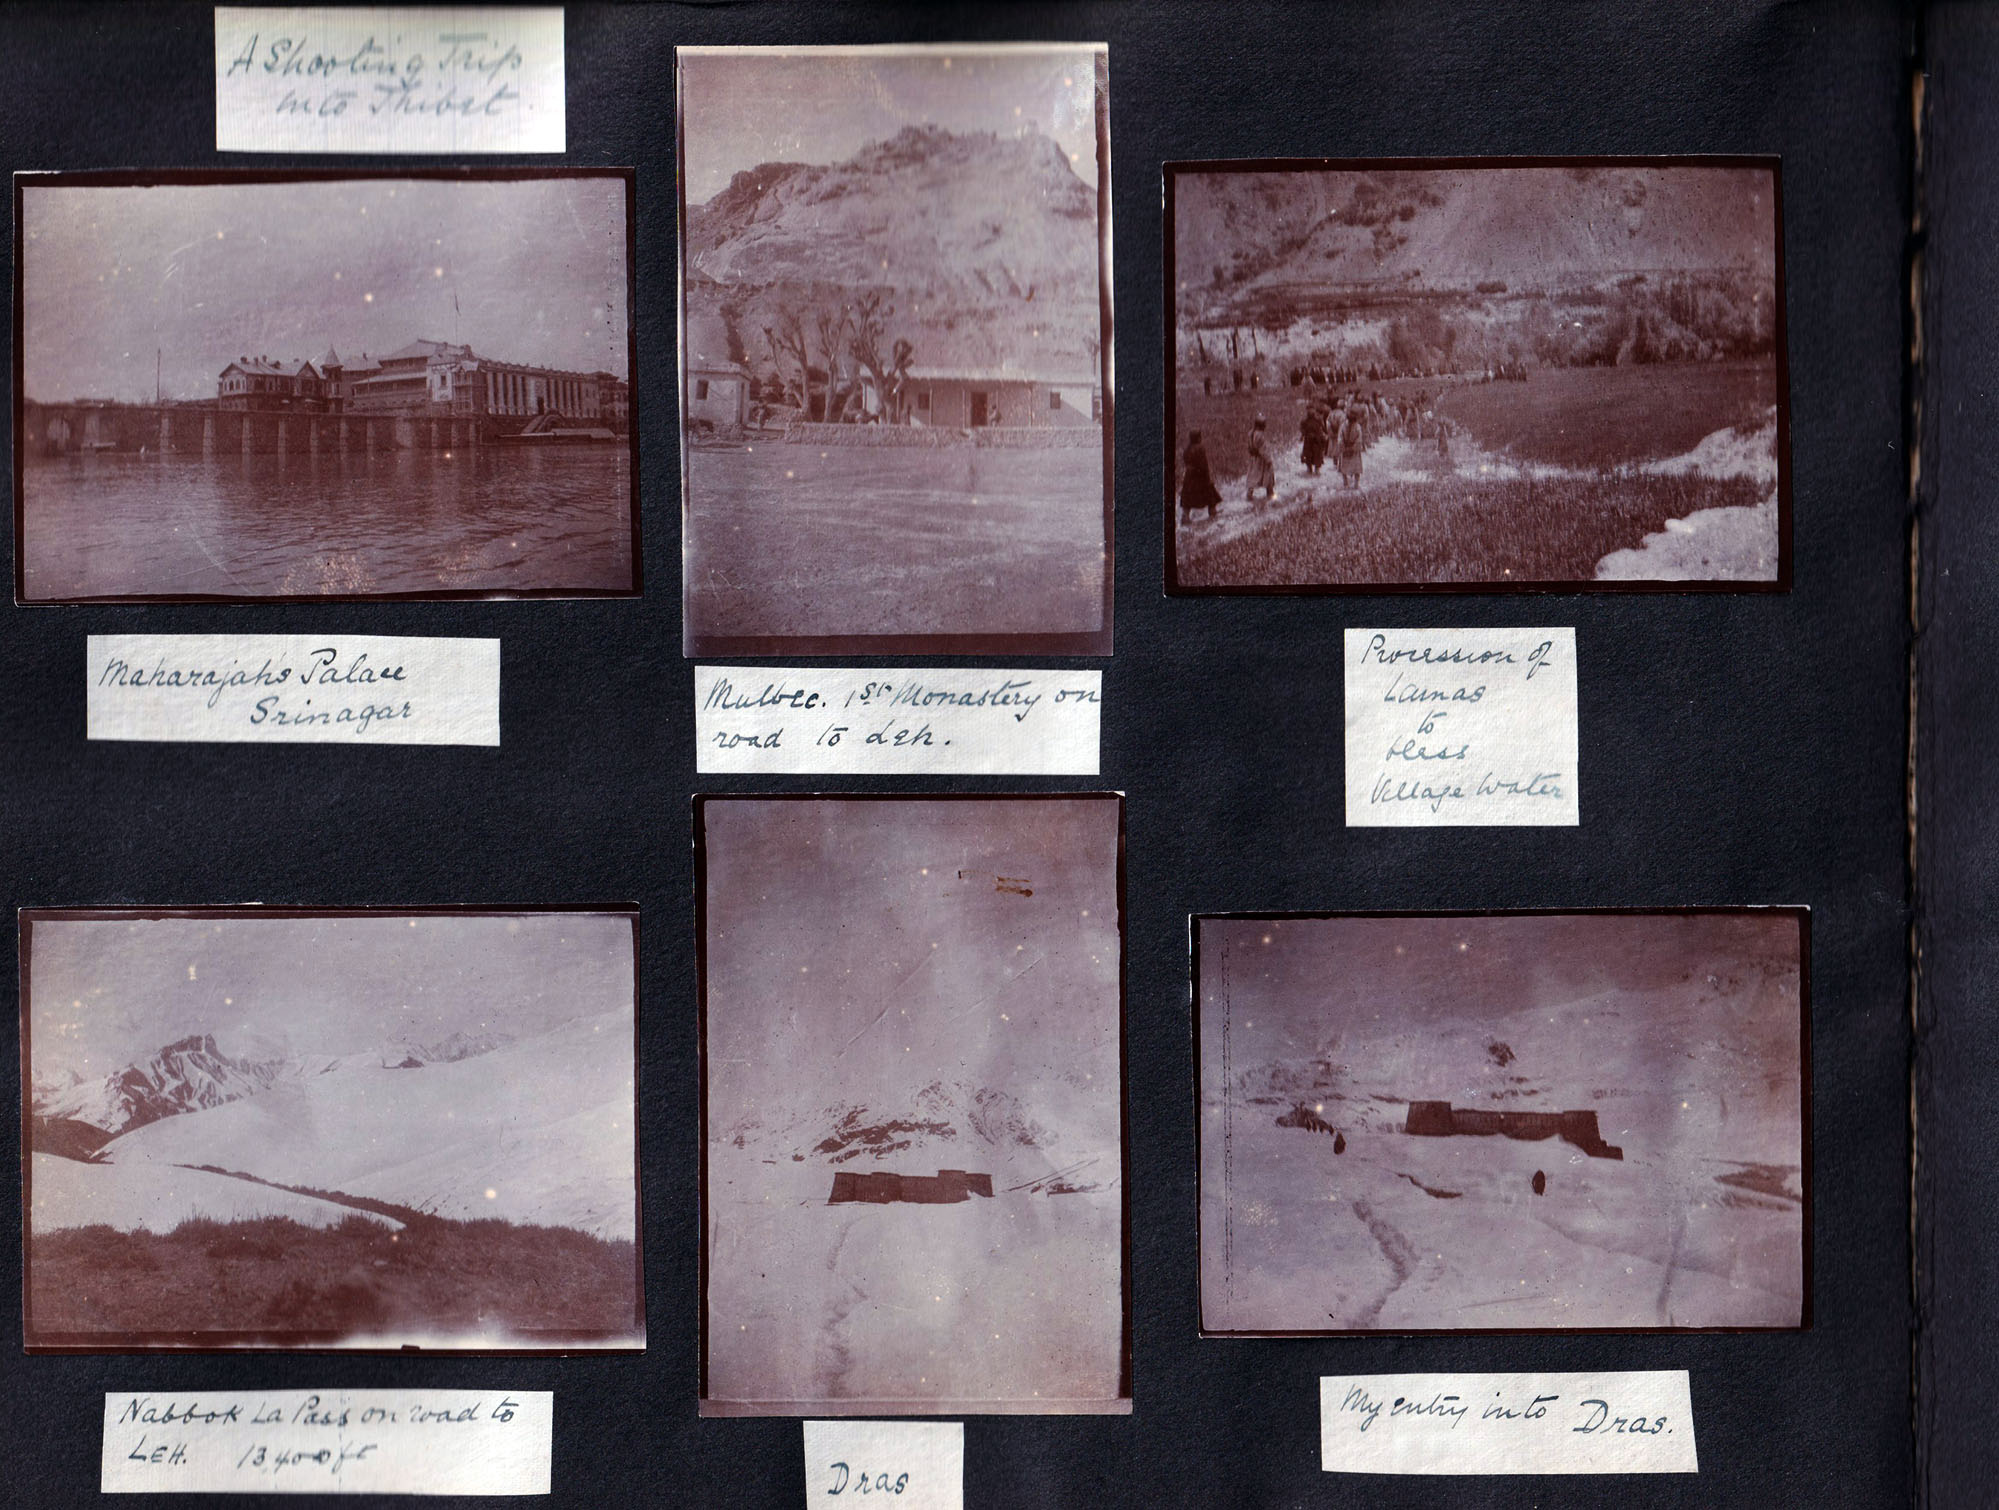 A Shooting Trip
into Thibet.
Maharajah's Palace
Srinagar
Mulbec. 1st Monastery on
road to Leh.
Procession of
Lamas
to
bless
Village Water
Nabbok La Pass on road to
LEH. 13400 ft
Dras
My entry into Dras.